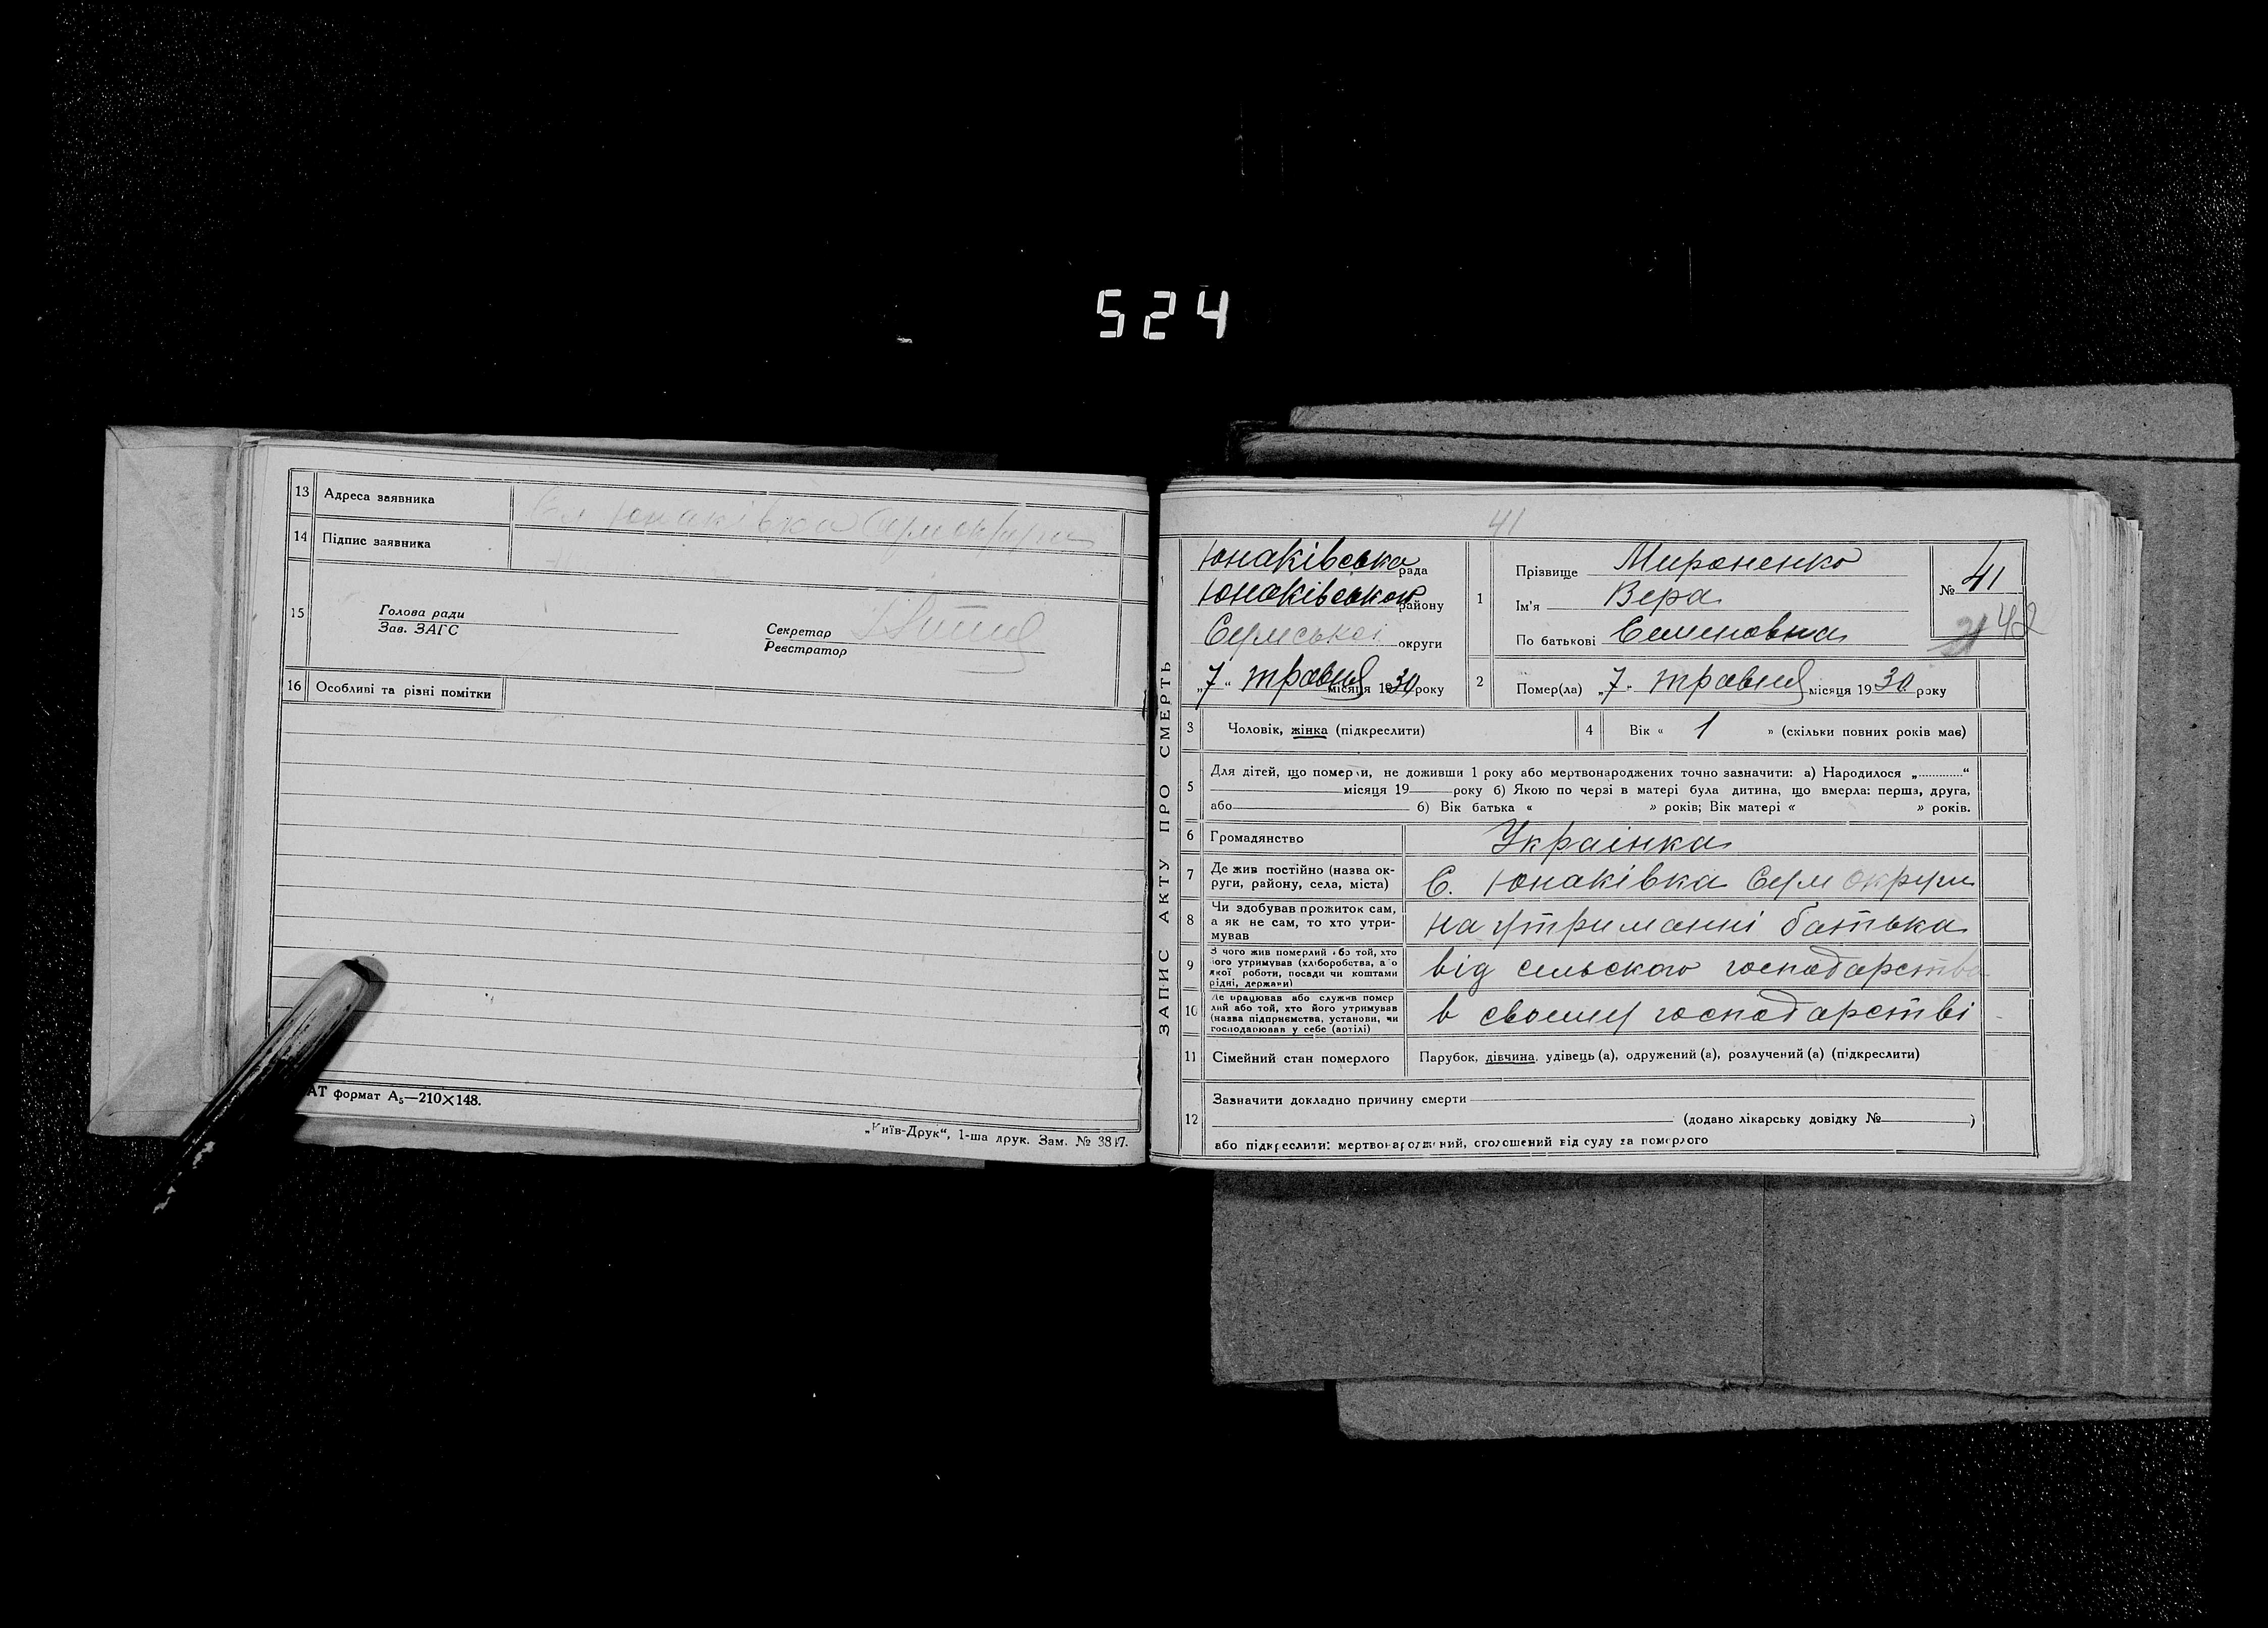 524
13 Адреса заявника Юнаківка Сум округи
14 Підпис заявника
15 Голова ради
Зав. ЗАГС
Секретар
Реєстратор
16 Особливі та різні помітки
АТ формат А5—210×148.
„Київ-Друк“, 1-ша друк. Зам. № 3817.
41
ЗАПИС АКТУ ПРО СМЕРТЬ
Юнаківська рада
Юнаківськок району
Сумської округи
„7“ травня місяця 1930 року
1 Прізвище Мироненко
Ім'я Вера
По батькові Семеновна
№ 41
42
2 Помер(ла) „7. травня місяця 1930 року
3 Чоловік, жінка (підкреслити)
4 Вік « 1 » (скільки повних років має)
5 Для дітей, що померли, не доживши 1 року або мертвонароджених точно зазначити: а) Народилося „............“
місяця 19 року б) Якою по черзі в матері була дитина, що вмерла: перша, друга,
або б) Вік батька « » років; Вік матері « » років.
6 Громадянство Українка
7 Де жив постійно (назва ок-
руги, району, села, міста) С. Юнаківка Сум округи
8 Чи здобував прожиток сам,
а як не сам, то хто утри-
мував на утриманні батька
9 З чого жив померлий або той, хто
його утримував (хліборобства, або
якої роботи, посади чи коштами
рідні, держави) від сельского господарства
10 Де працював або служив помер
лий або той, хто його утримував
(назва підприємства, установи, чи
господарював у себе (артілі) в своему господарстві
11 Сімейний стан померлого Парубок, дівчина, удівець (а), одружений (а), розлучений (а) (підкреслити)
12 Зазначити докладно причину смерти
(додано лікарську довідку № )
або підкреслити: мертвонароджений, оголошений від суду за померлого